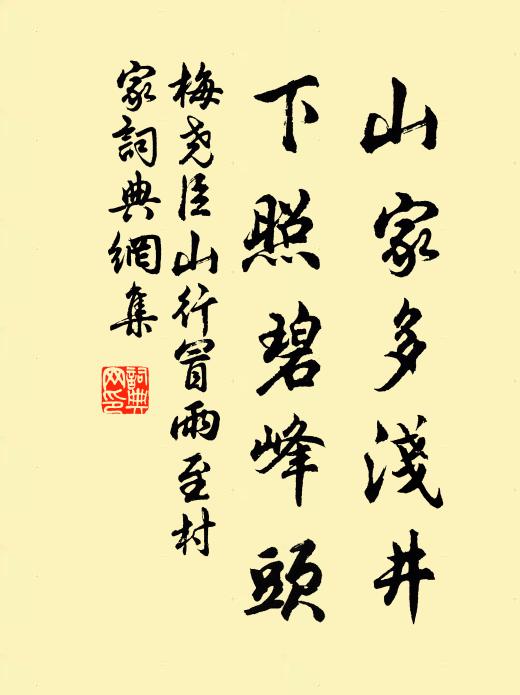 山家多淺井
下照碧峰頭
梅堯臣山行冒雨至村
家詞典網集
詞典
网印